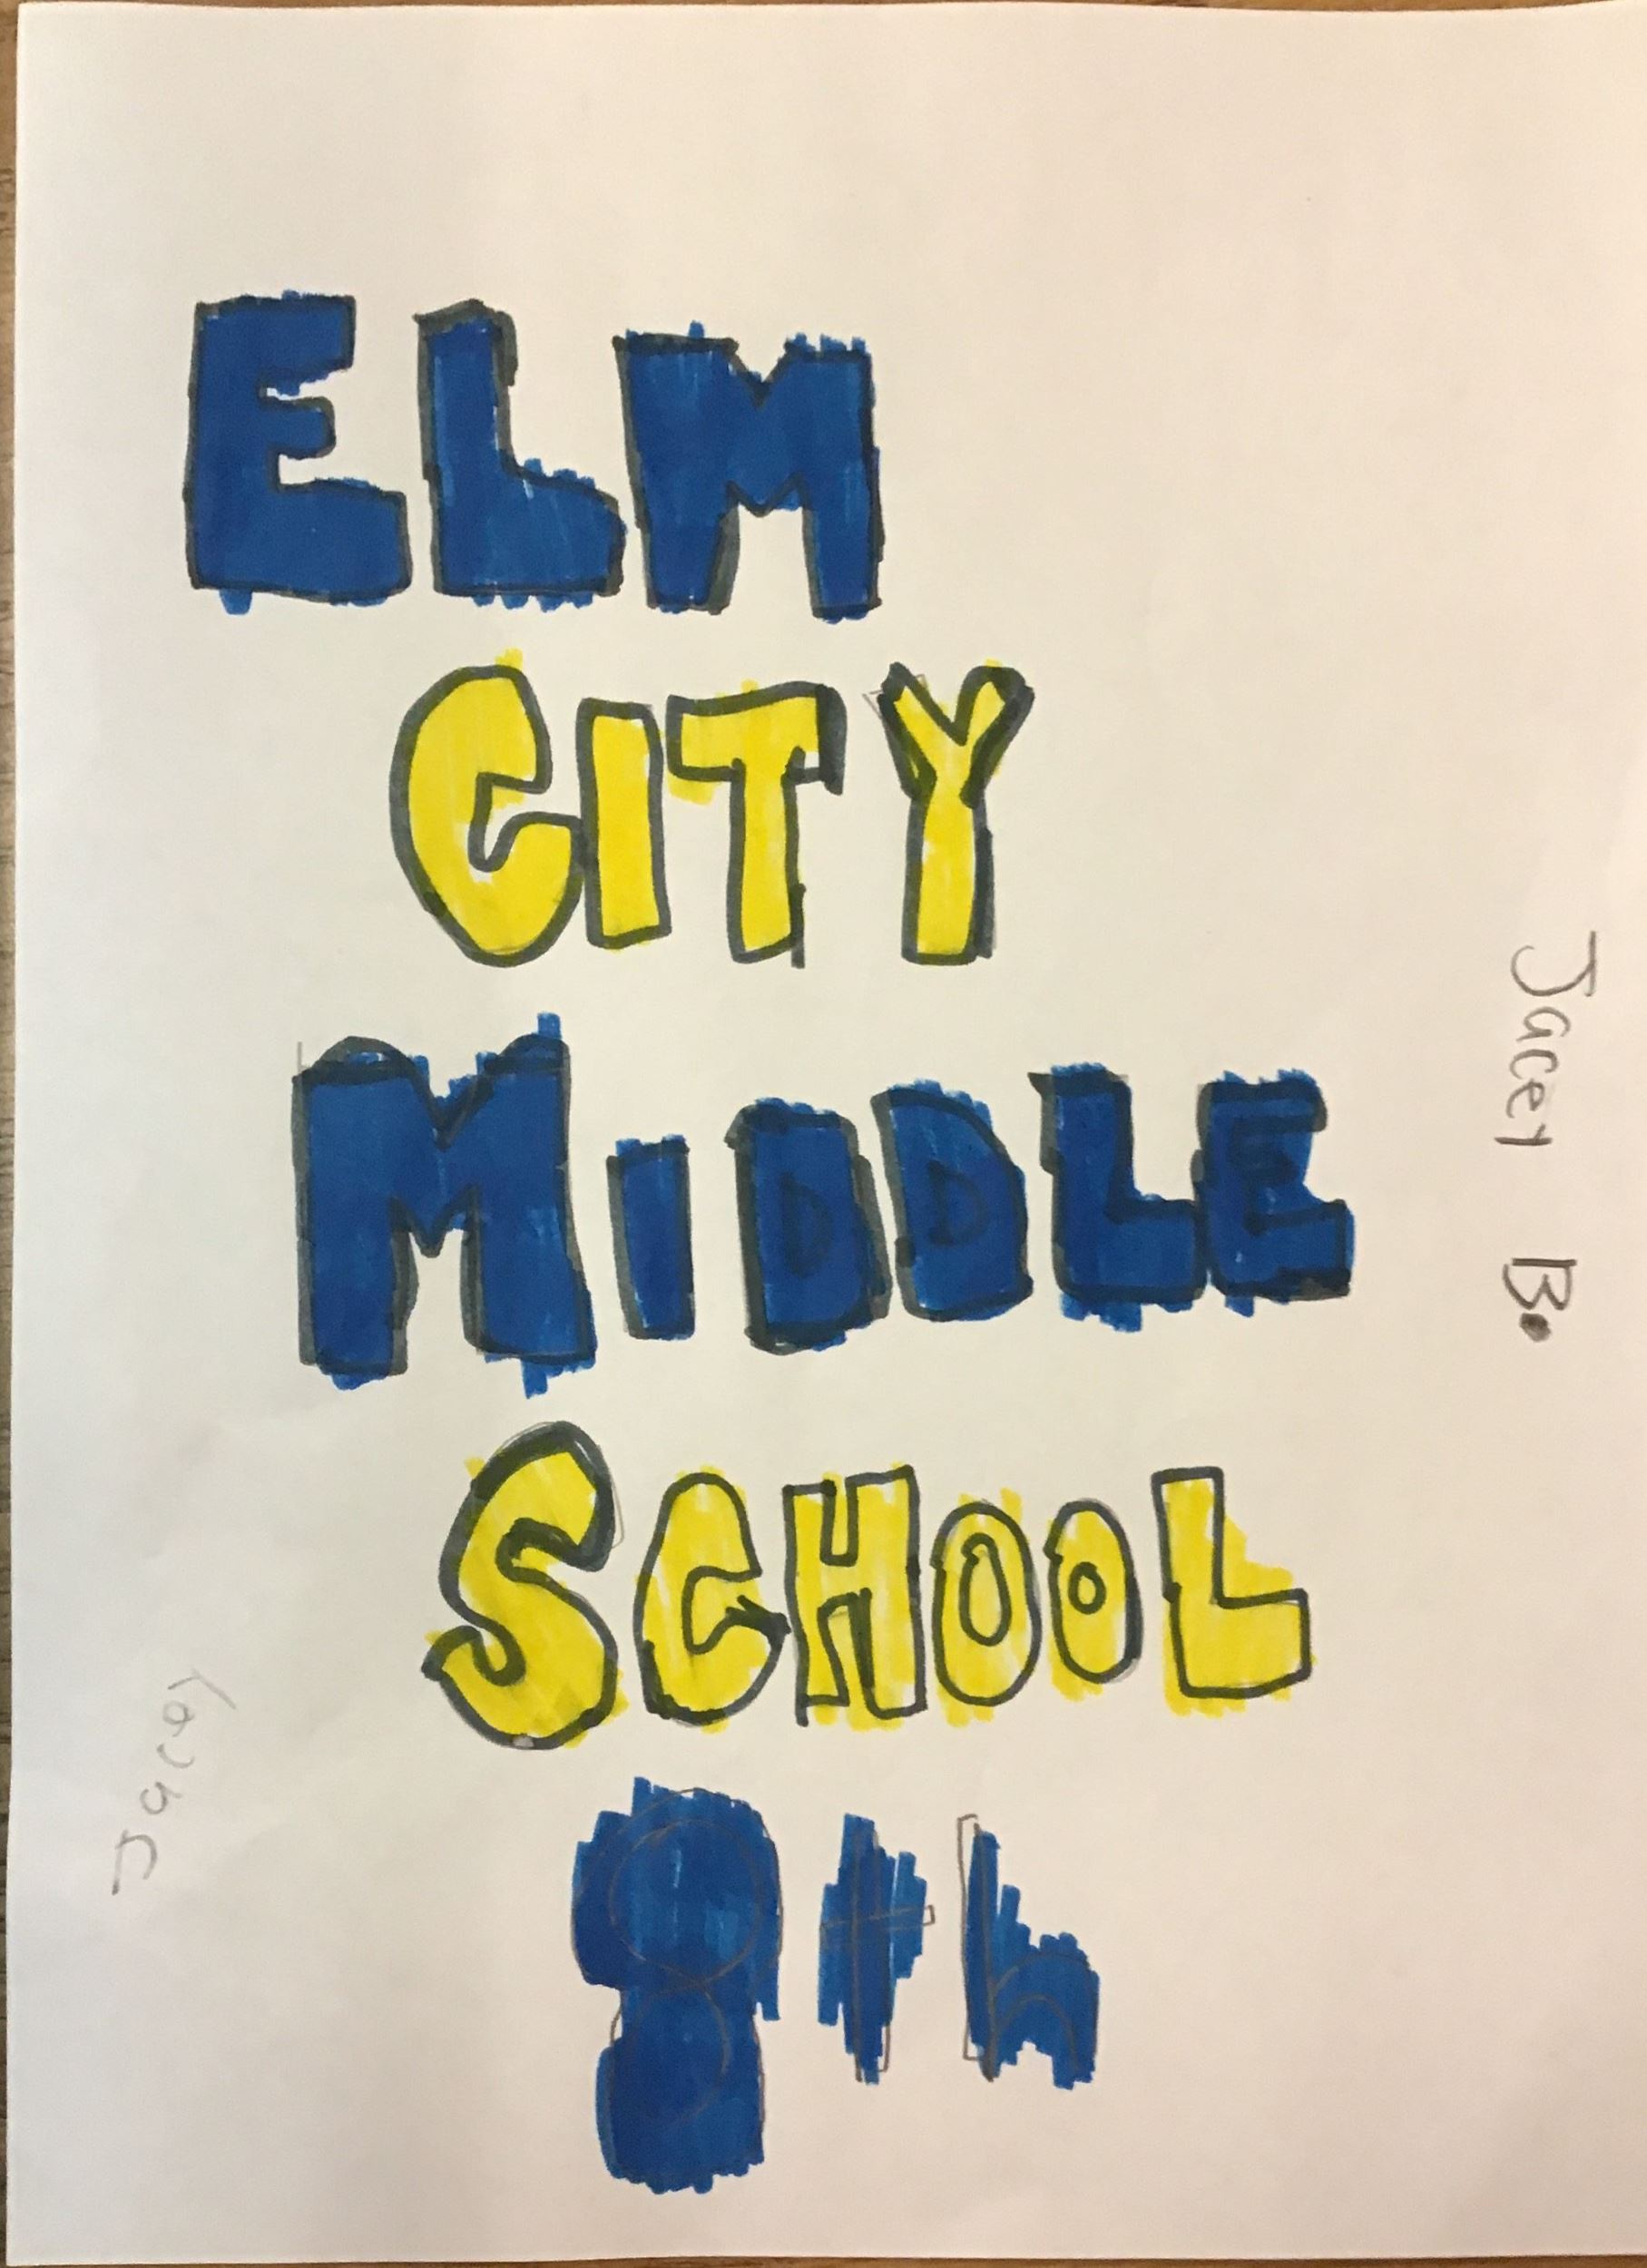 ELM
CITY
MIDDLE
SCHOOL
8th
Jacey B.
Jacey